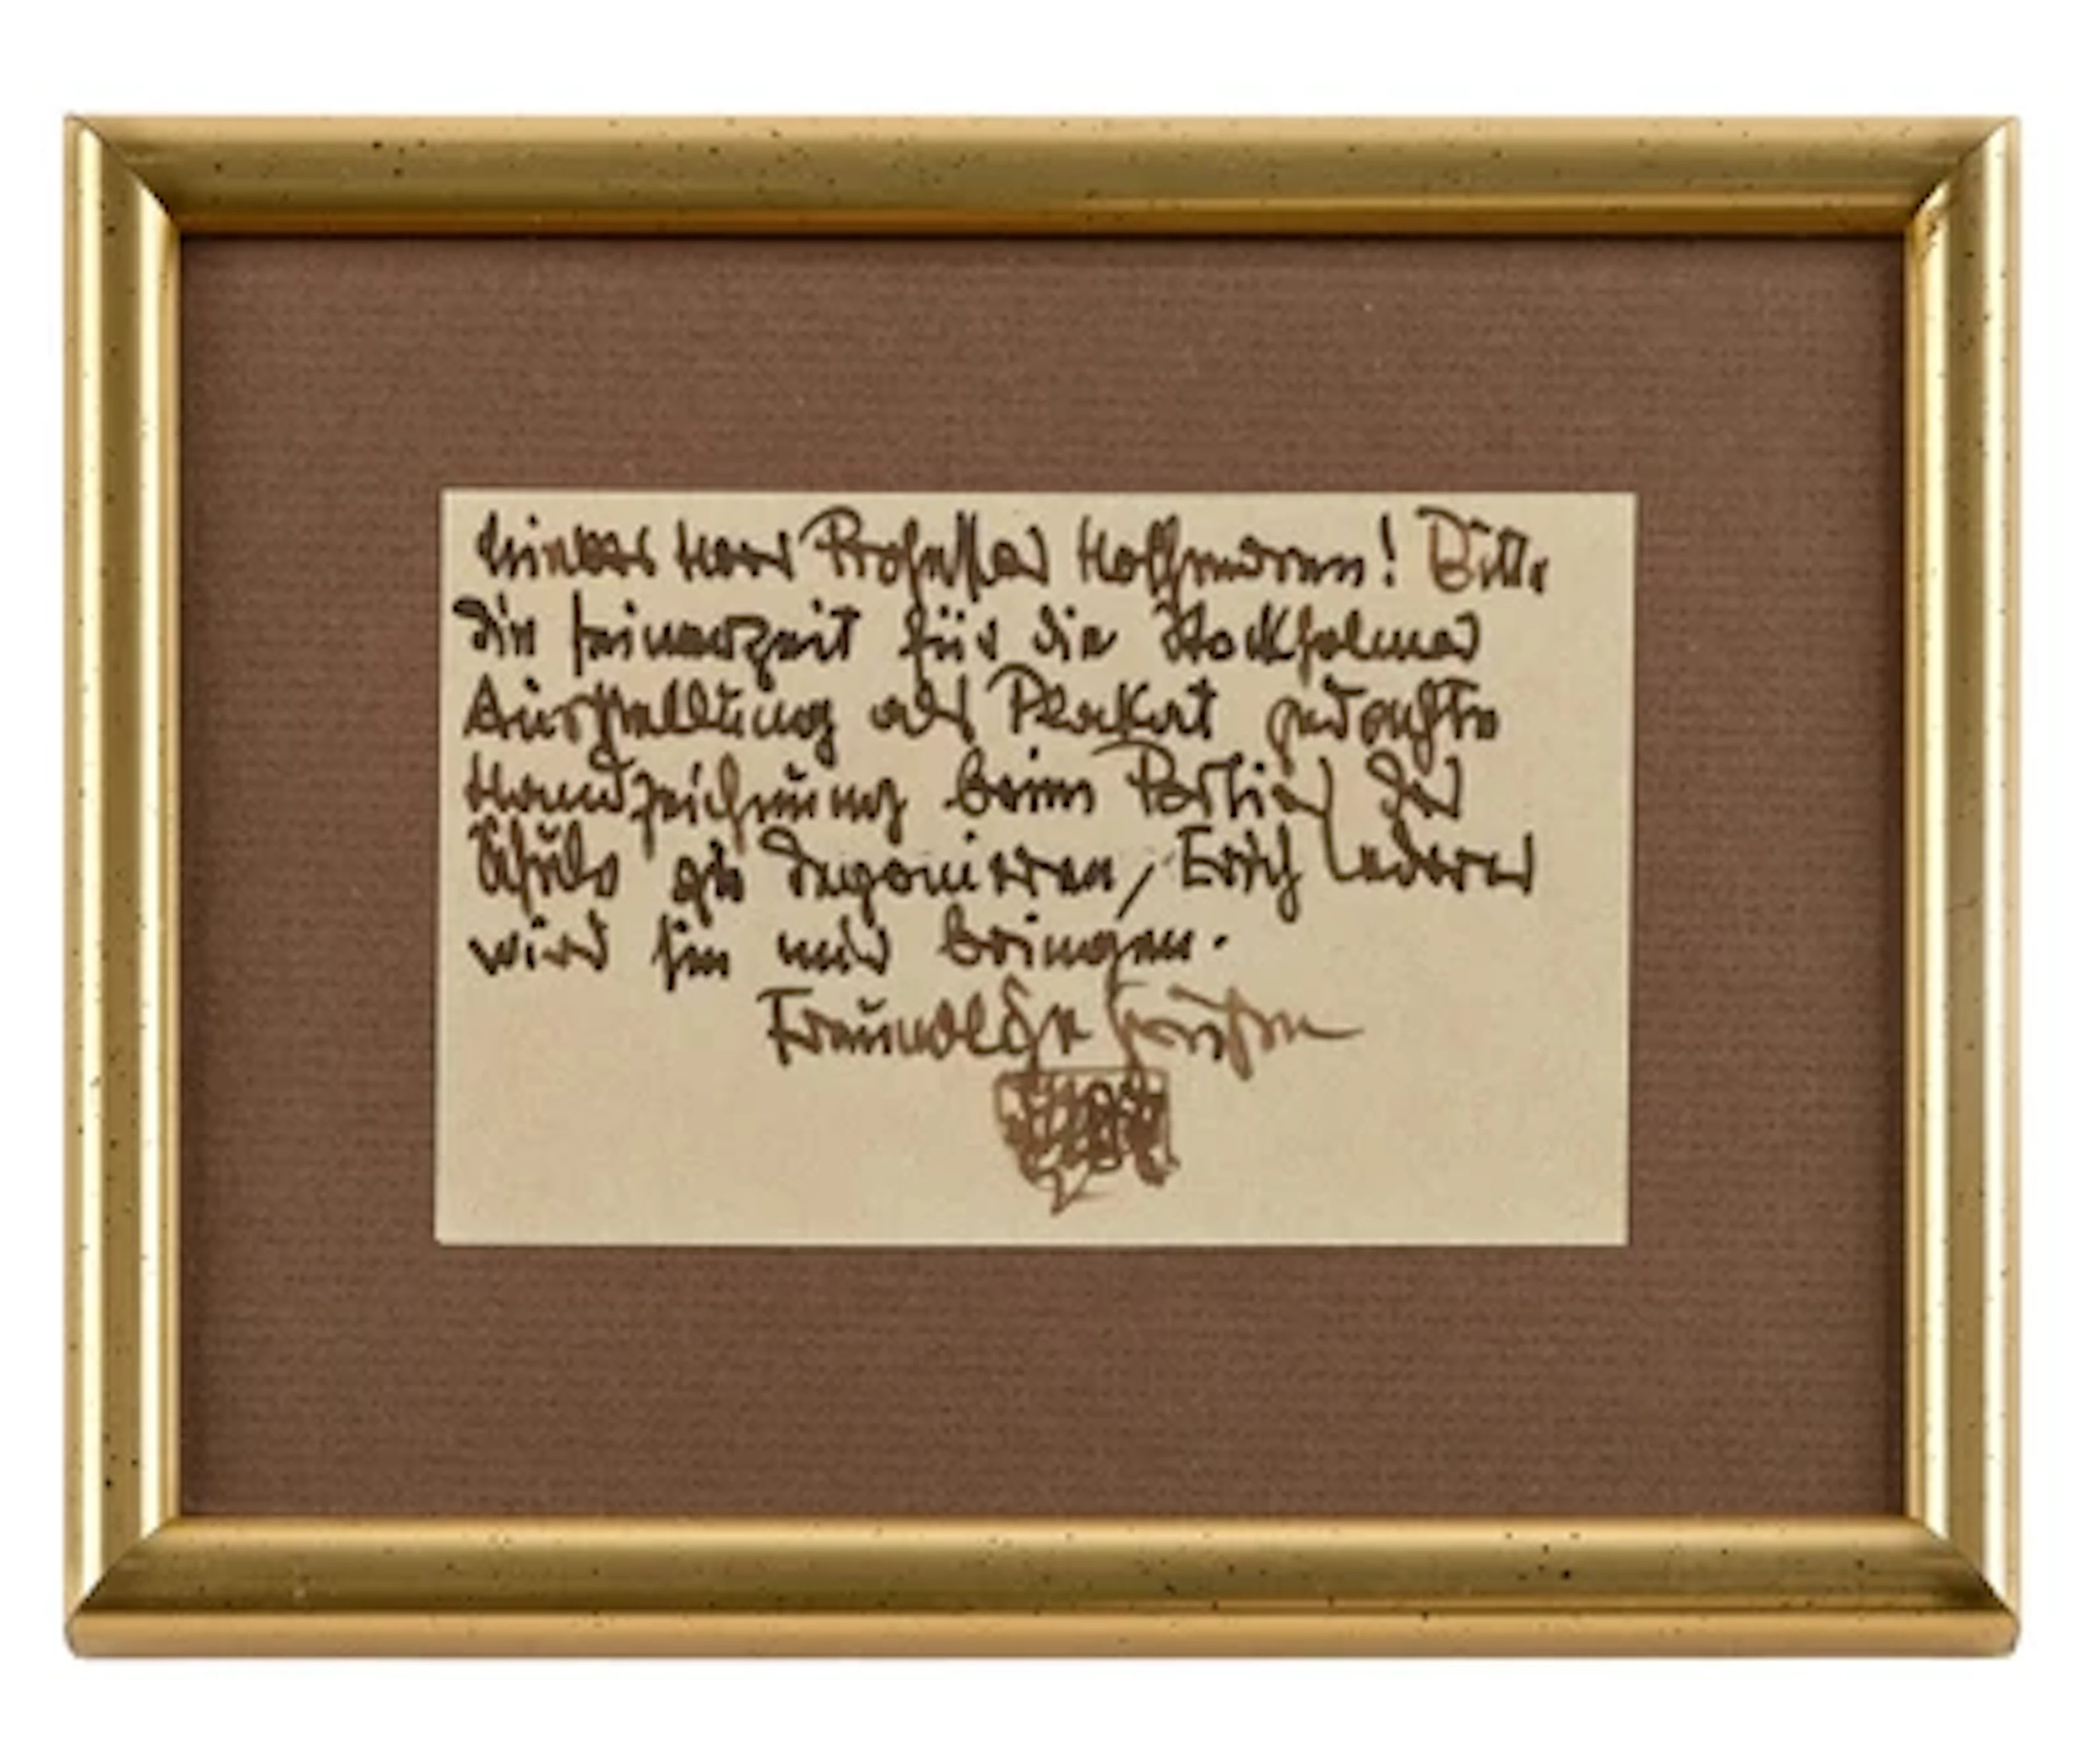 Lieber Herr Professor Hoffmann! Bitte
die seinerzeit für die Stockholmer
Ausstellung als Plakat gedachte
Handzeichnung beim Portier der
Schule zu deponieren, Erich Lederer
wird sie mir bringen.
Freundliche Grüsse